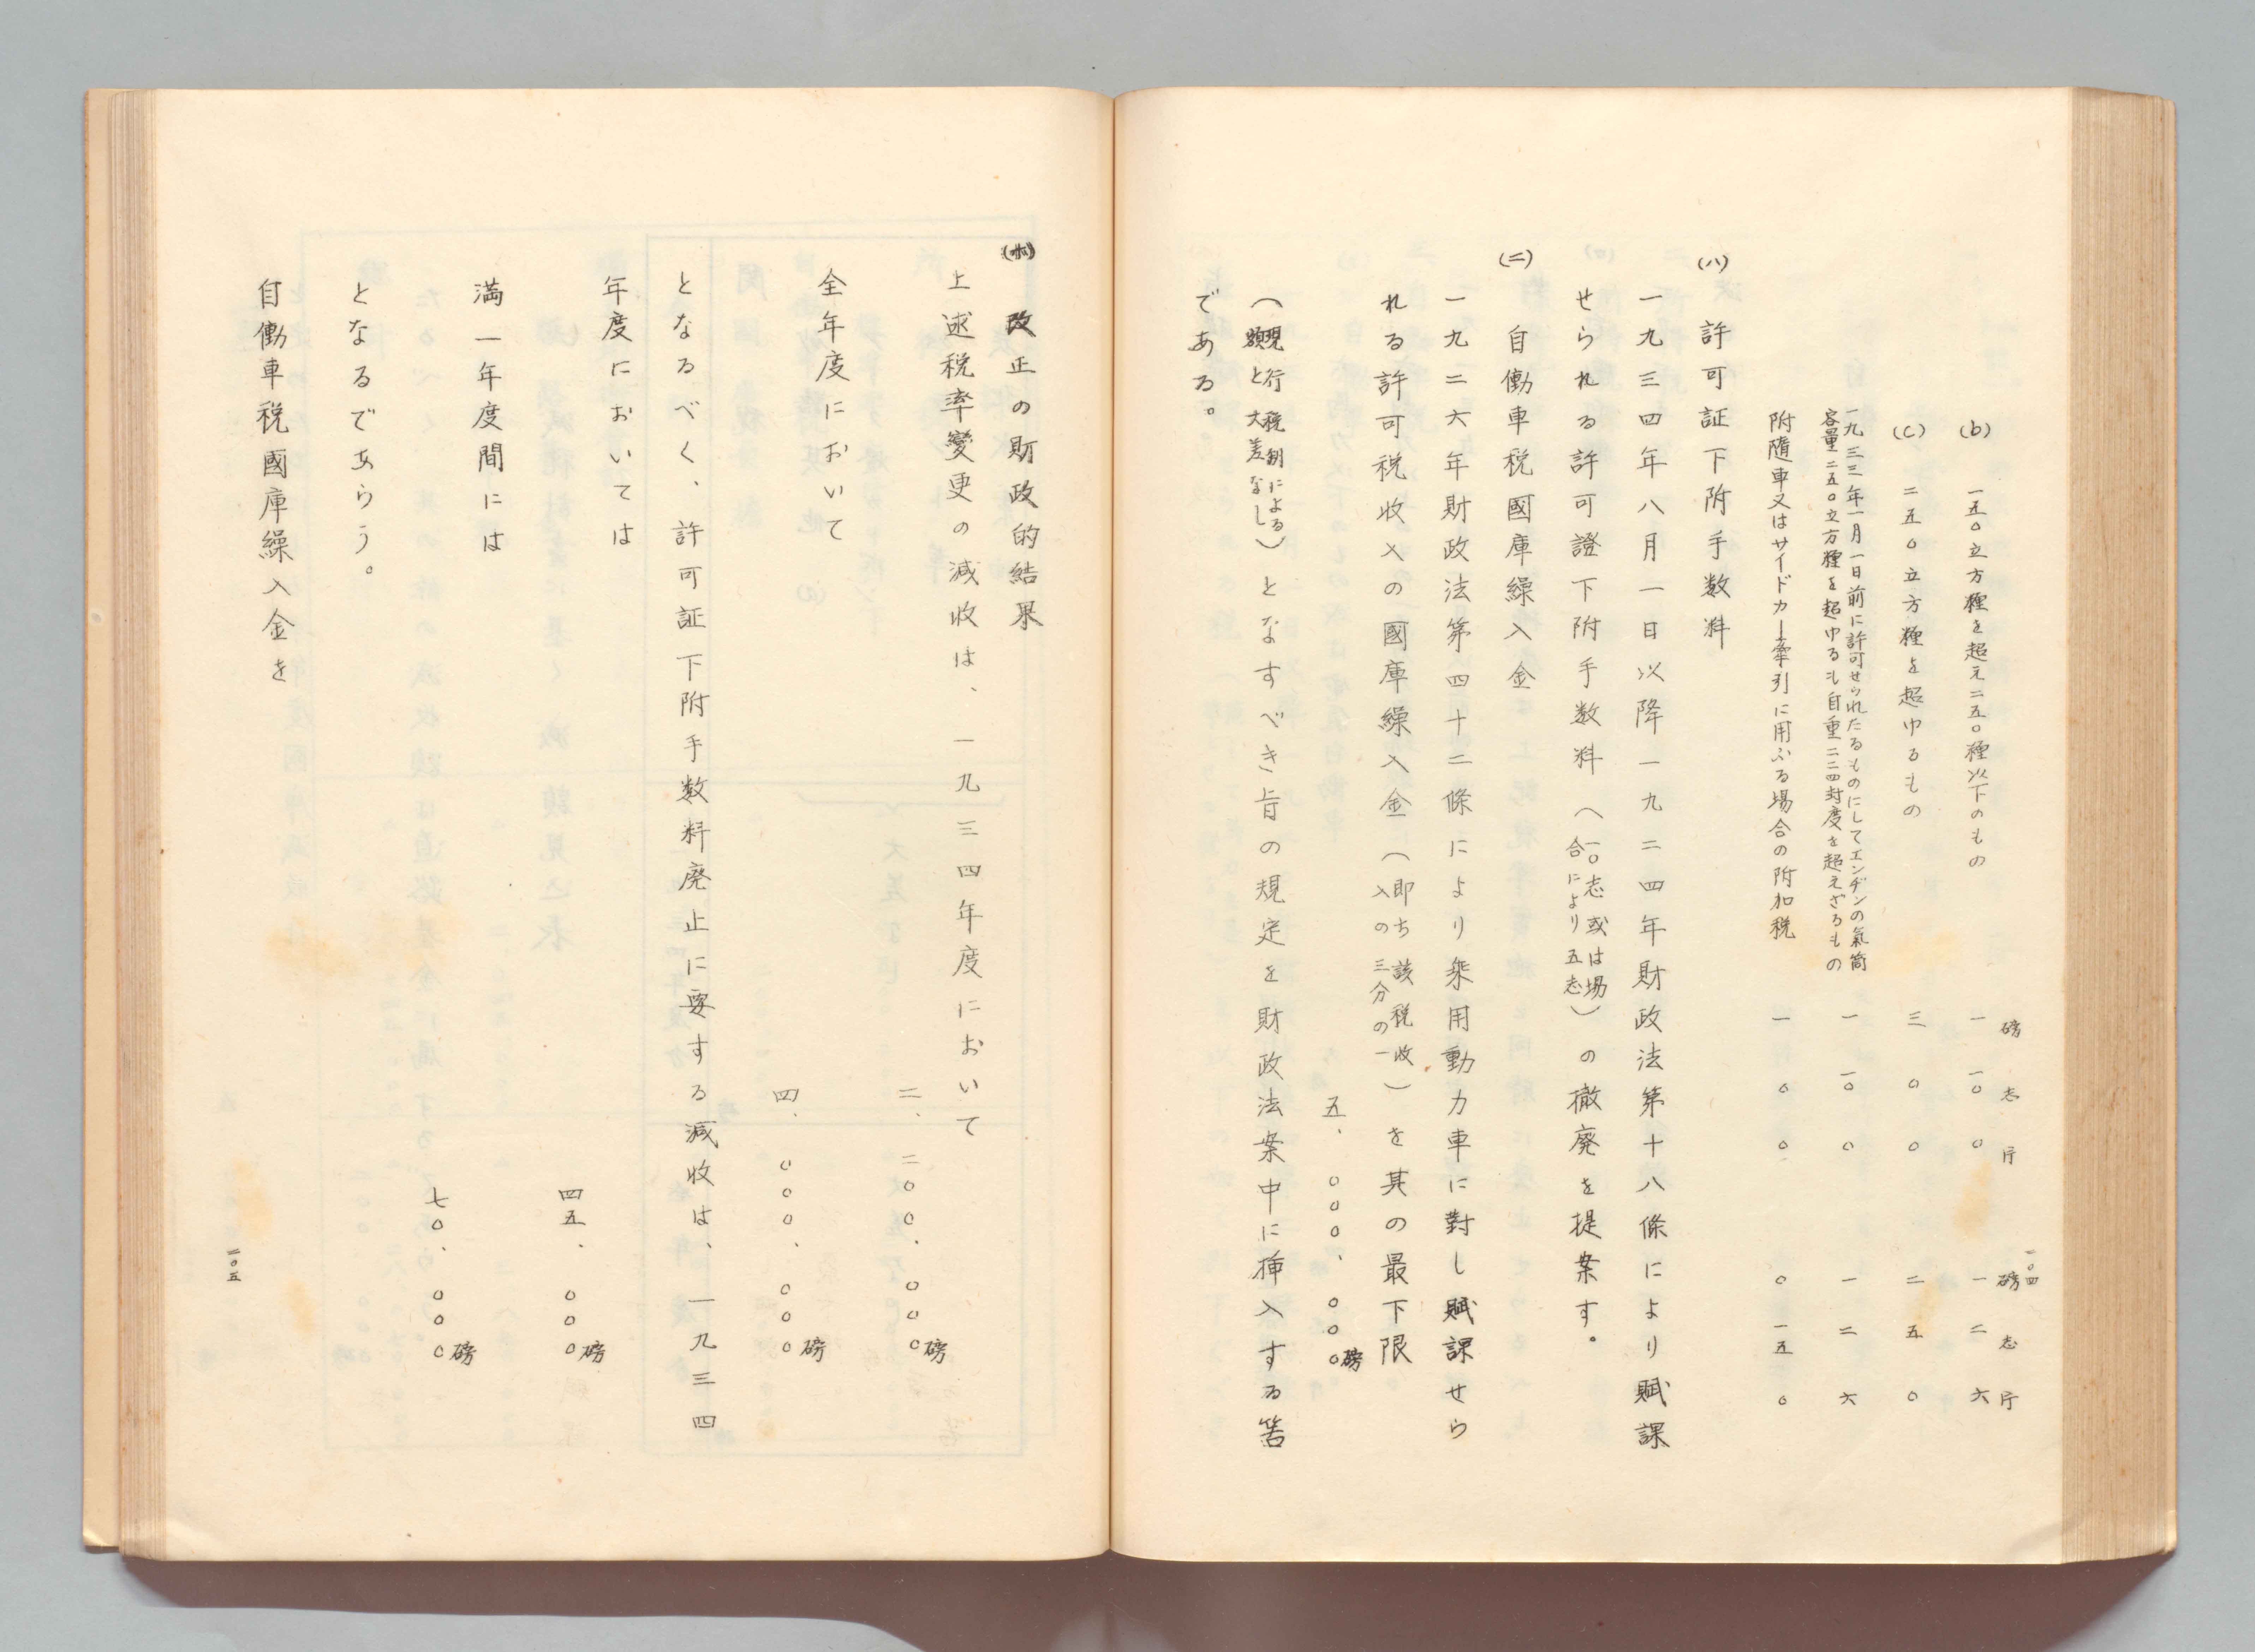 一〇四
磅 志 片 磅 志 片
(b) 一五〇立方糎を超え二五〇糎以下のもの 一 一〇 〇 一 二 六
(c) 二五〇立方糎を超ゆるもの 三 〇 〇 二 五 〇
一九三三年一月一日前に許可せられたるものにしてエンヂンの氣筒
容量二五〇立方糎を超ゆるも自重二二四封度を超えざるもの 一 一〇 〇 一 二 六
附隨車又はサイドカー牽引に用ふる場合の附加税 一 〇 〇 〇 一五 〇
(ハ) 許可証下附手数料
一九三四年八月一日以降一九二四年財政法第十八條により賦課
せられる許可證下附手数料(一〇志或は場合により五志)の撤廃を提案す。
(ニ) 自働車税國庫繰入金
一九二六年財政法第四十二條により乗用動力車に對し賦課せら
れる許可税收入の國庫繰入金(即ち該税收入の三分の一)を其の最下限
五、〇〇〇、〇〇〇磅
(現行税制による額と大差なし)となすべき旨の規定を財政法案中に挿入する筈
である。
(ホ) 改正の財政的結果
上述税率變更の減收は、一九三四年度において
二、二〇〇、〇〇〇磅
全年度において
四、〇〇〇、〇〇〇磅
となるべく、許可証下附手数料廃止に要する減收は、一九三四
年度においては
四五、〇〇〇磅
満一年度間には
七〇、〇〇〇磅
となるであらう。
自働車税國庫繰入金を
二〇五